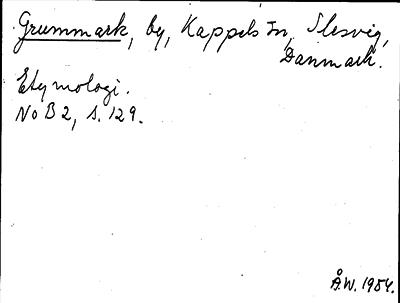 Grummark, by, Kappels sn, Slesvig,
Danmark.
Etymologi.
NoB 2, s. 129.
Å.W. 1984.